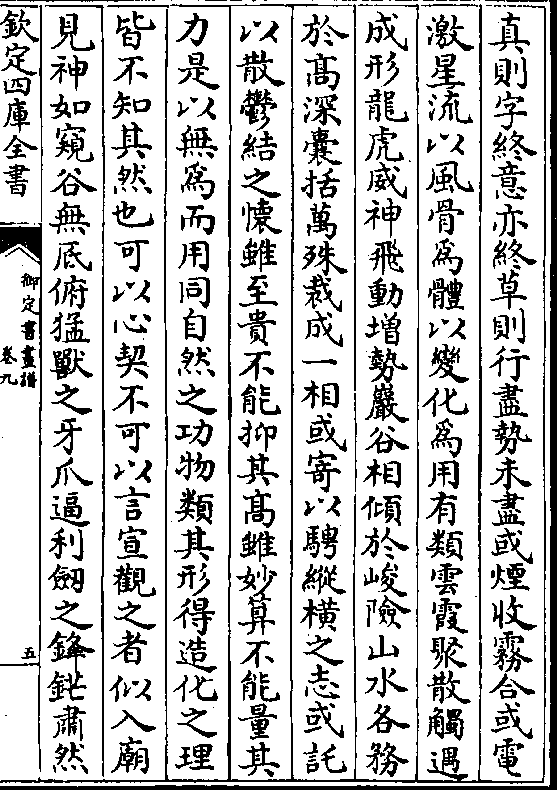 真則字終意亦終草則行盡勢未盡或煙收霧合或電
激星流以風骨為體以變化為用有類雲霞聚散觸遇
成形龍虎威神飛動增勢巖谷相傾於峻險山水各務
於高深囊括萬殊裁成一相或寄以騁縱橫之志或託
以散鬱結之懷雖至貴不能抑其高雖妙算不能量其
力是以無為而用同自然之功物類其形得造化之理
皆不知其然也可以心契不可以言宣觀之者似入廟
見神如窺谷無底俯猛獸之牙爪逼利劒之鋒鋩肅然
欽定四庫全書
御定書畫譜
卷九
五